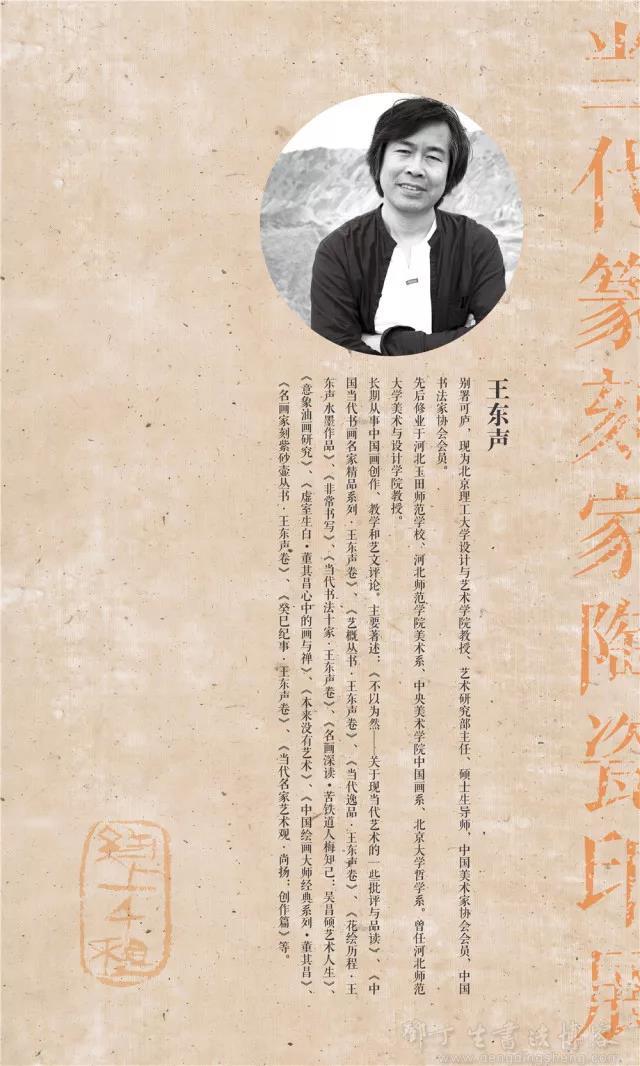 当代篆刻家陶瓷印展
王东声
别署可庐，现为北京理工大学设计与艺术学院教授、艺术研究部主任、硕士生导师，中国美术家协会会员、中国
书法家协会会员。
先后修业于河北玉田师范学校、河北师范学院美术系、中央美术学院中国画系、北京大学哲学系。曾任河北师范
大学美术与设计学院教授。
长期从事中国画创作、教学和艺文评论。主要著述：《不以为然——关于现当代艺术的一些批评与品读》、《中
国当代书画名家精品系列·王东声卷》、《艺概丛书·王东声卷》、《当代逸品·王东声卷》、《花绘历程·王
东声水墨作品》、《非常书写》、《当代书法十家·王东声卷》、《名画深读·苦铁道人梅知己：吴昌硕艺术人生》、
《意象油画研究》、《虚室生白·董其昌心中的画与禅》、《本来没有艺术》、《中国绘画大师经典系列·董其昌》、
《名画家刻紫砂壶丛书·王东声卷》、《癸巳纪事·王东声卷》、《当代名家艺术观·尚扬：创作篇》等。
邓丁生书法博缘
www.dengdingsheng.com